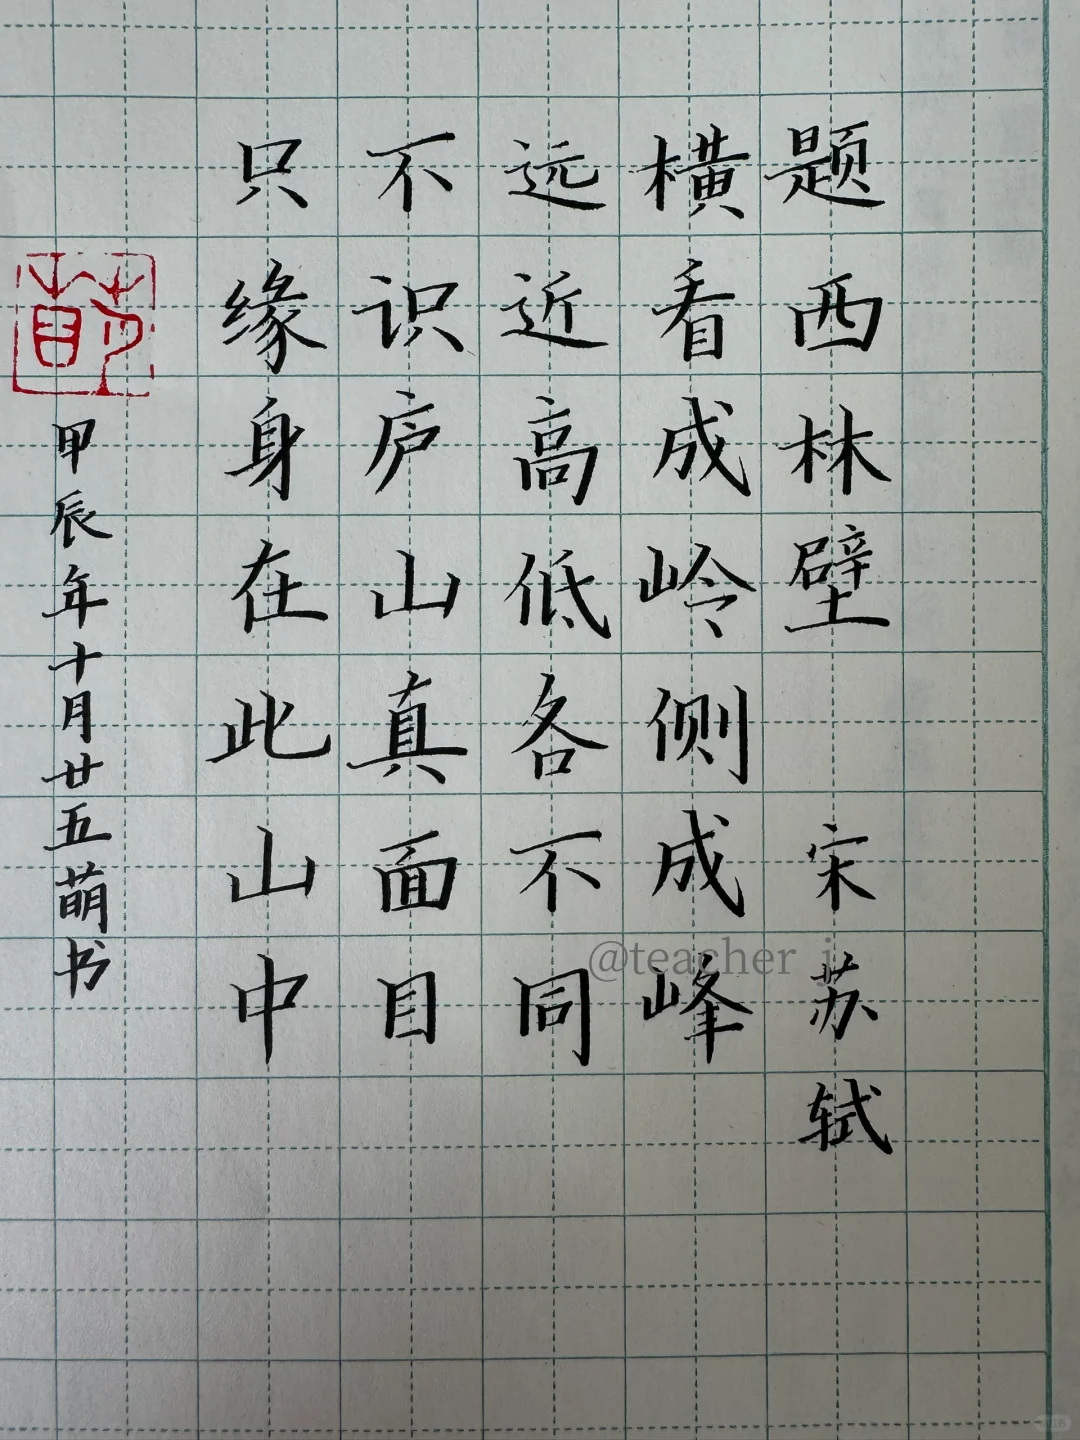 题西林壁 宋苏轼
横看成岭侧成峰
远近高低各不同
不识庐山真面目
只缘身在此山中
甲辰年十月廿五萌书
@teacher_j